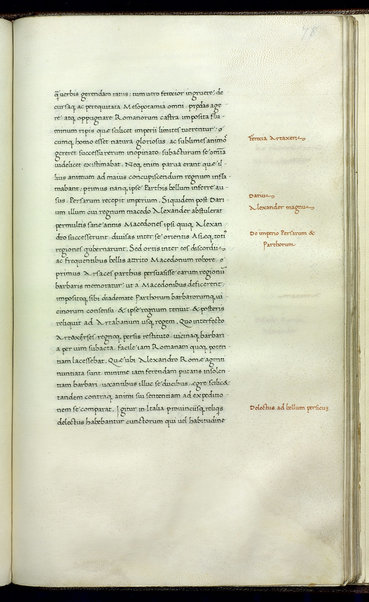 q̃ verbis gerendam ratus: tum uero ferocior ingruere: de
cursaq; ac perequitata Mesopotamia omni: prędas age
re: atq; oppugnare Romanorum castra: imposita flu
minum ripis quę scilicet imperii limites tuerentur: o
cumq; homo esset natura gloriosus: ac sublimes animos
gereret successu rerum inopinato: subacturum se omĩa
uidelicet existimabat. Neq; enim parua erant quę il
lius animum ad maius concupiscendum regnum infla
mabant: primus nanq; ipse Parthis bellum inferre au
sus: Persarum recepit imperium. Siquidem post Dari
um illum cui regnum macedo Alexander abstulerat
permultis sane annis Macedones ipsiq; Alexan
dro successerunt: diuisas inter se orientis Asięq; totiꝰ
regiones gubernarunt. Sed ortis inter eos discordiis
ac frequentibus bellis attrito Macedonum robore:
primus Arsaces parthus persuasisse earum regionũ
barbaris memoratur: ut a Macedonibus deficerent:
impositoq; sibi diademate Parthorum barbarorumq; ui
cinorum consensu & ipse regnum tenuit: & posteris
reliquit ad Artabanum usq; regem. Quo interfecto
Artaxerses regnoq; persis restituto: uicinaq; barbari
a per uim subacta: facile iam Romanam quoq; poten
tiam lacessebat. Quę ubi Alexandro Romę agenti
nuntiata sunt: minime iam ferendam putans insolen
tiam barbari: uocantibus illuc se ducibus: egre scilicet
tandem contraq; animi sui sententiam ad expeditio
nem se comparat. Igitur in Italia prouinciisq; reliqs
delectus habebantur cunctorum qui uel habitudine
ferocia Artaxersis
Darius
Alexander magnus
De imperio Persarum &
Parthorum
Delectus ad bellum persicum